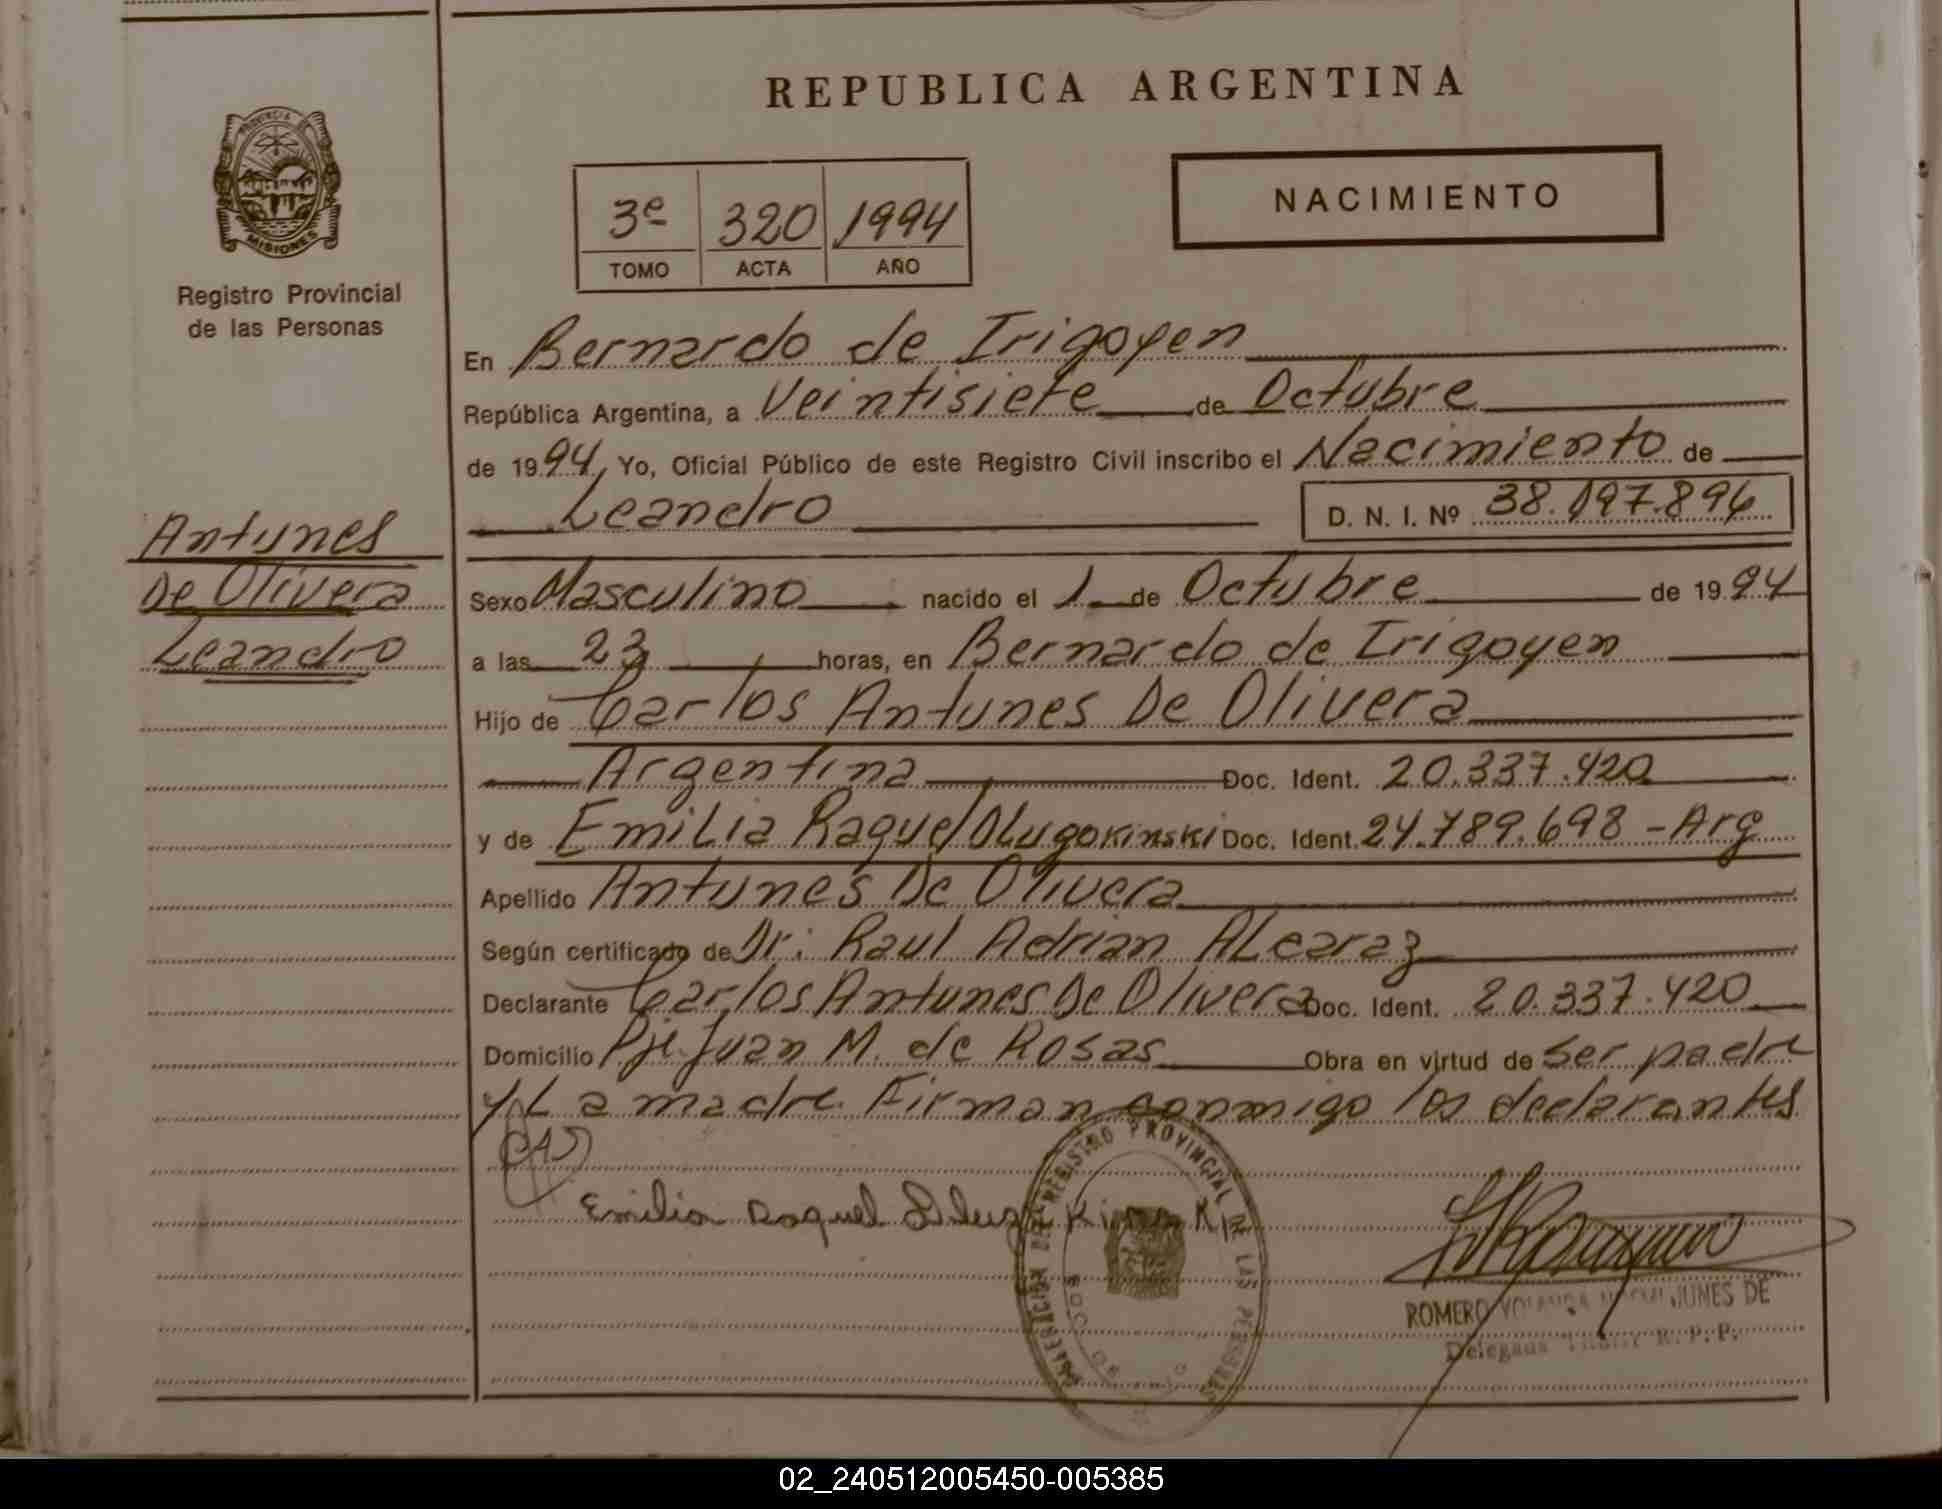 REPUBLICA ARGENTINA
PROVINCIA DE
MISIONES
Registro Provincial
de las Personas
3e 320 1994
TOMO ACTA AÑO
NACIMIENTO
En Bernardo de Irigoyen
República Argentina, a Veintisiete de Octubre
de 1994, Yo, Oficial Público de este Registro Civil inscribo el Nacimiento de
Leandro D. N. I. Nº 38.197.896
Antunes
De Olivera
Leandro
Sexo Masculino nacido el 1 de Octubre de 1994
a las 23 horas, en Bernardo de Irigoyen
Hijo de Carlos Antunes De Olivera
Argentina Doc. Ident. 20.337.420
y de Emilia Raquel Dlugokinski Doc. Ident. 24.789.698 - Arg
Apellido Antunes De Olivera
Según certificado de Dr: Raul Adrian Alcaraz
Declarante Carlos Antunes De Olivera Doc. Ident. 20.337.420
Domicilio Pje Juan M. de Rosas Obra en virtud de ser padre
y La madre Firman conmigo los declarantes
Emilia Raquel
REGISTRO PROVINCIAL DE LAS PERSONAS
ROMERO YOLANDA DE
Delegada R. P. P.
02_240512005450-005385